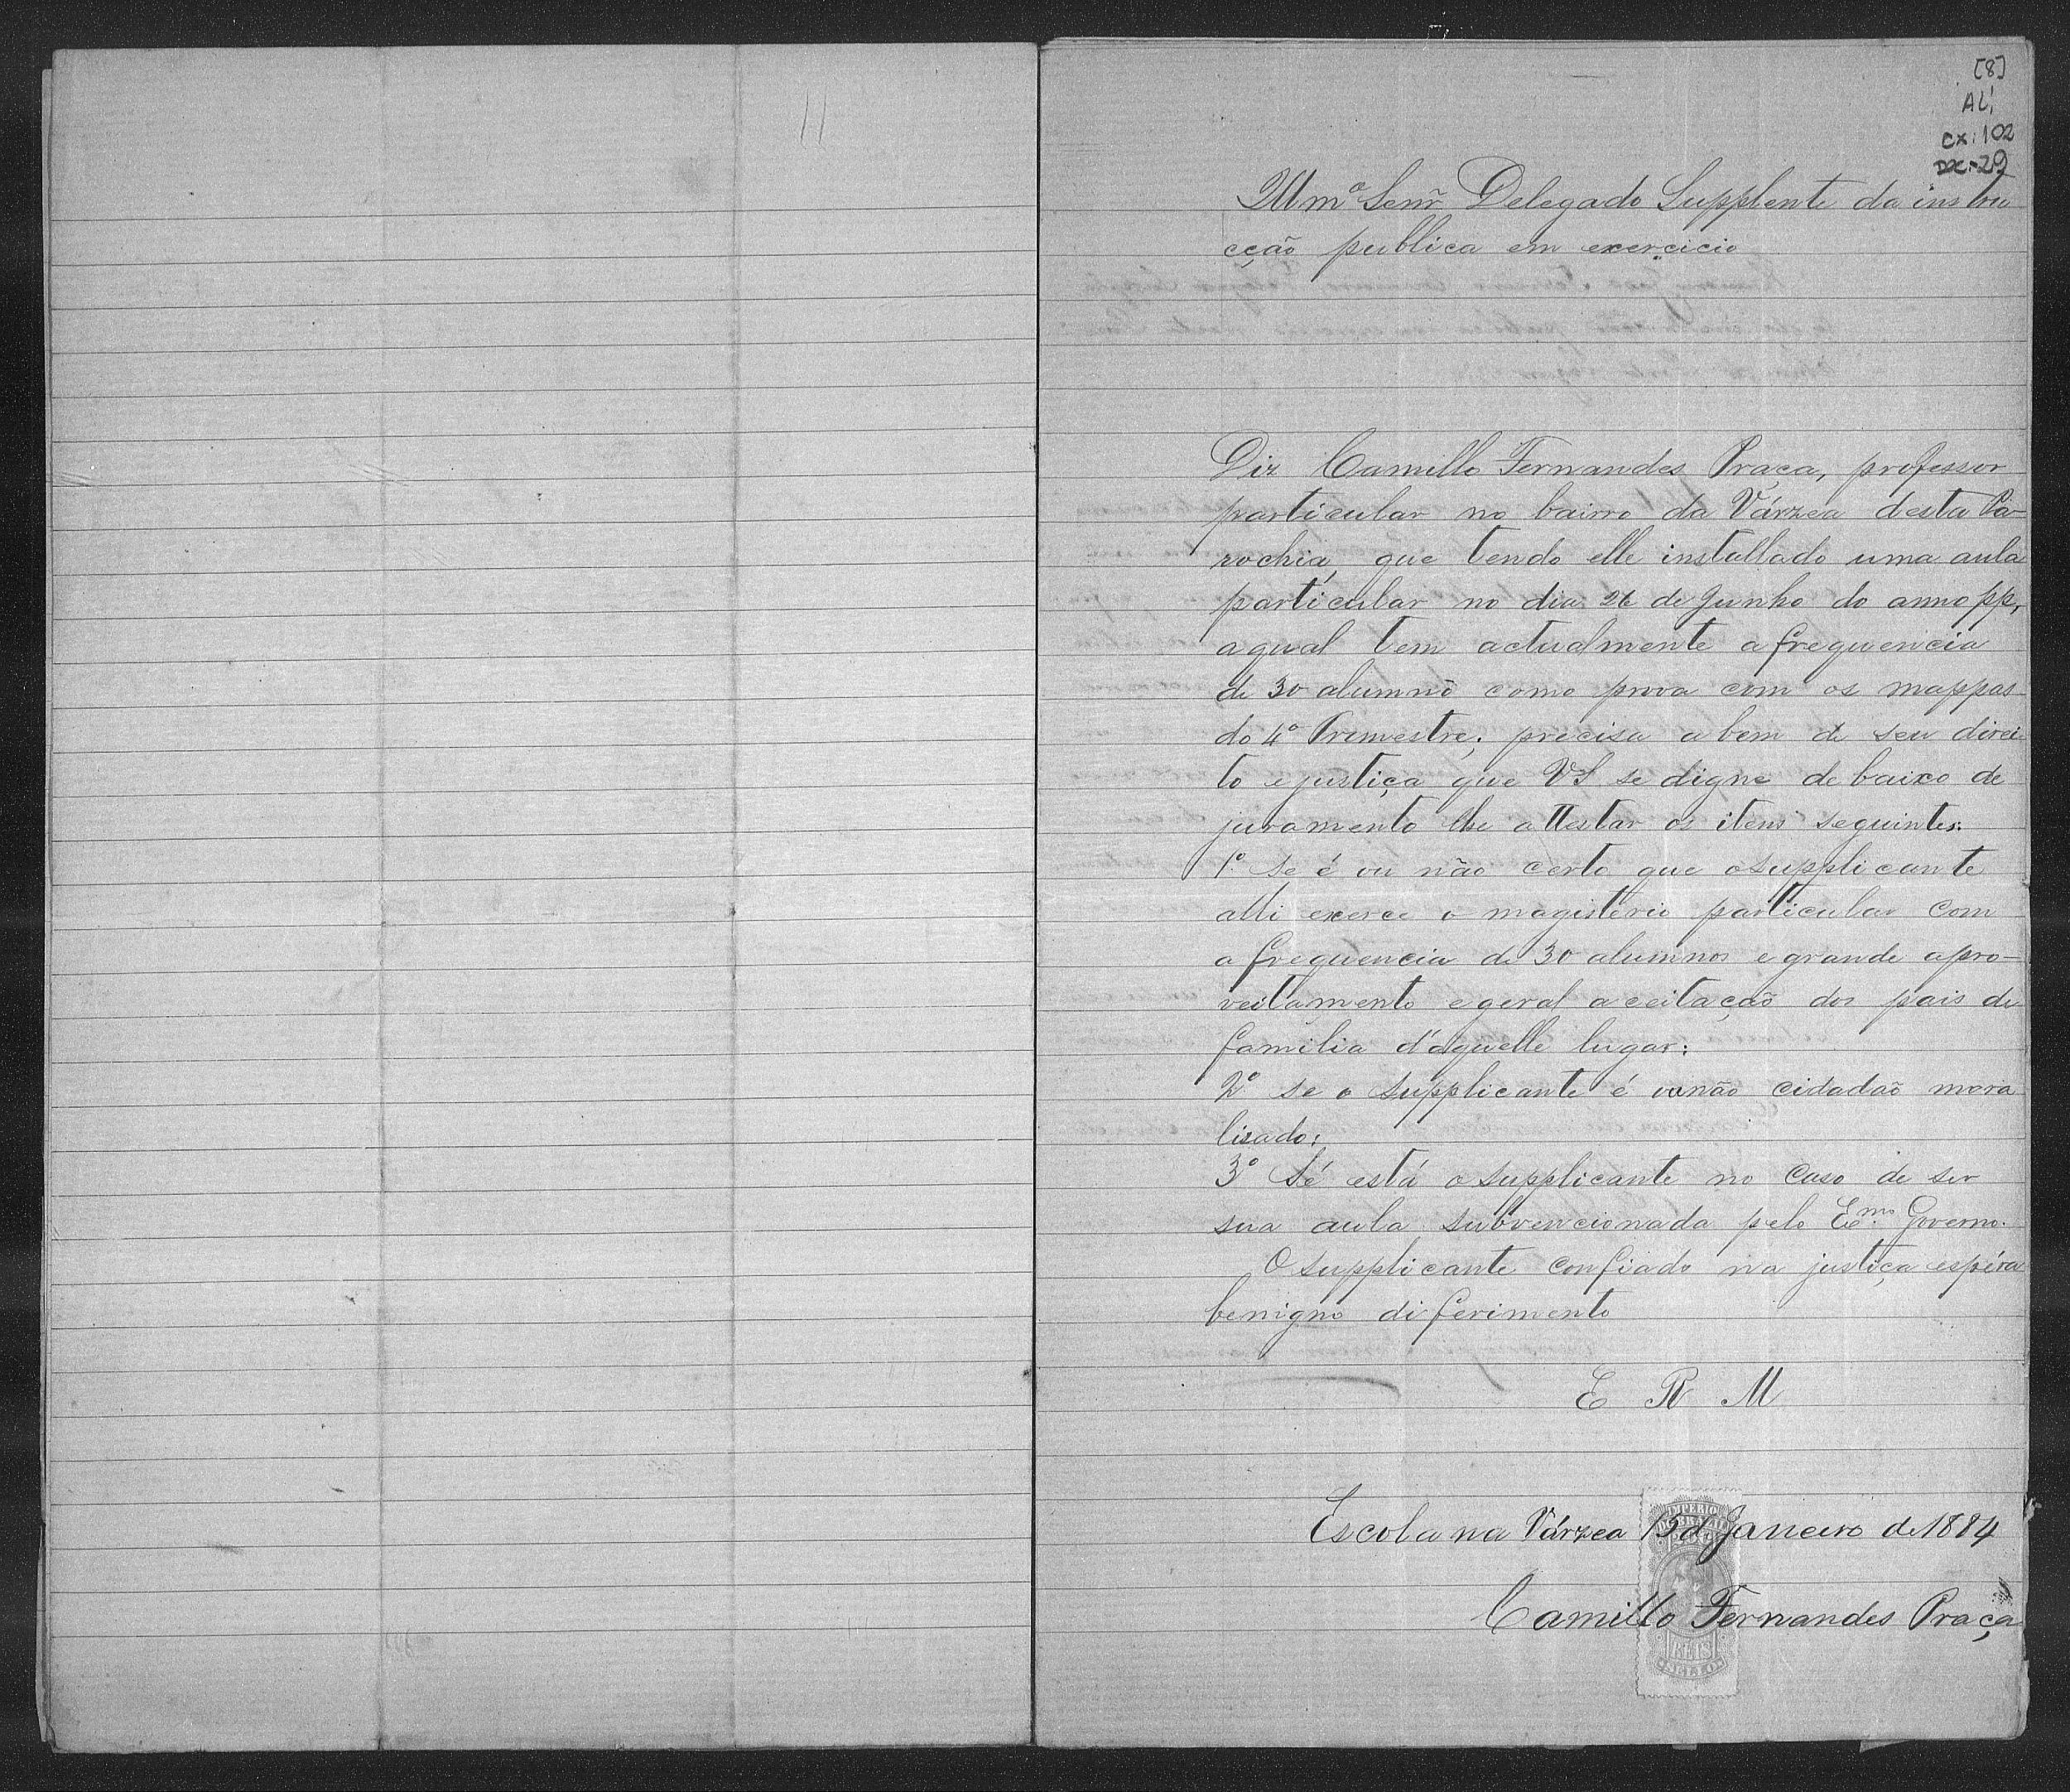 [8]
AL!
CX: 102
DOC-29
Illmº Senr̃ Delegado Supplente da instru
cção publica em exercicio
Diz Camillo Fernandes Praça, professor
particular no bairro da Várzea desta Pa-
rochia, que tendo elle installado uma aula
particular no dia 26 de Junho do anno pp,
a qual tem actualmente a frequencia
de 30 alumnõ como prova com os mappas
do 4º Trimestre; precisa a bem de seu direi-
to e justiça que VS se digne de baixo de
juramento lhe attestar os itens seguintes:
1º se é ou não certo que o supplicante
alli exerce o magisterio particular com
a frequencia de 30 alumnos e grande apro-
veitamento e geral aceitação dos pais de
familia d'aquelle lugar:
2º se o supplicante é ou não cidadão mora
lizado:
3º Sé está o supplicante no caso de ser
sua aula subvencionada pelo Exmo Governo.
O supplicante confiado na justiça espéra
benigno diferimento
E R M
Escola na Várzea 15 de Janeiro de 1884
IMPERIO
DO BRAZIL
200
Camillo Fernandes Praça
REIS